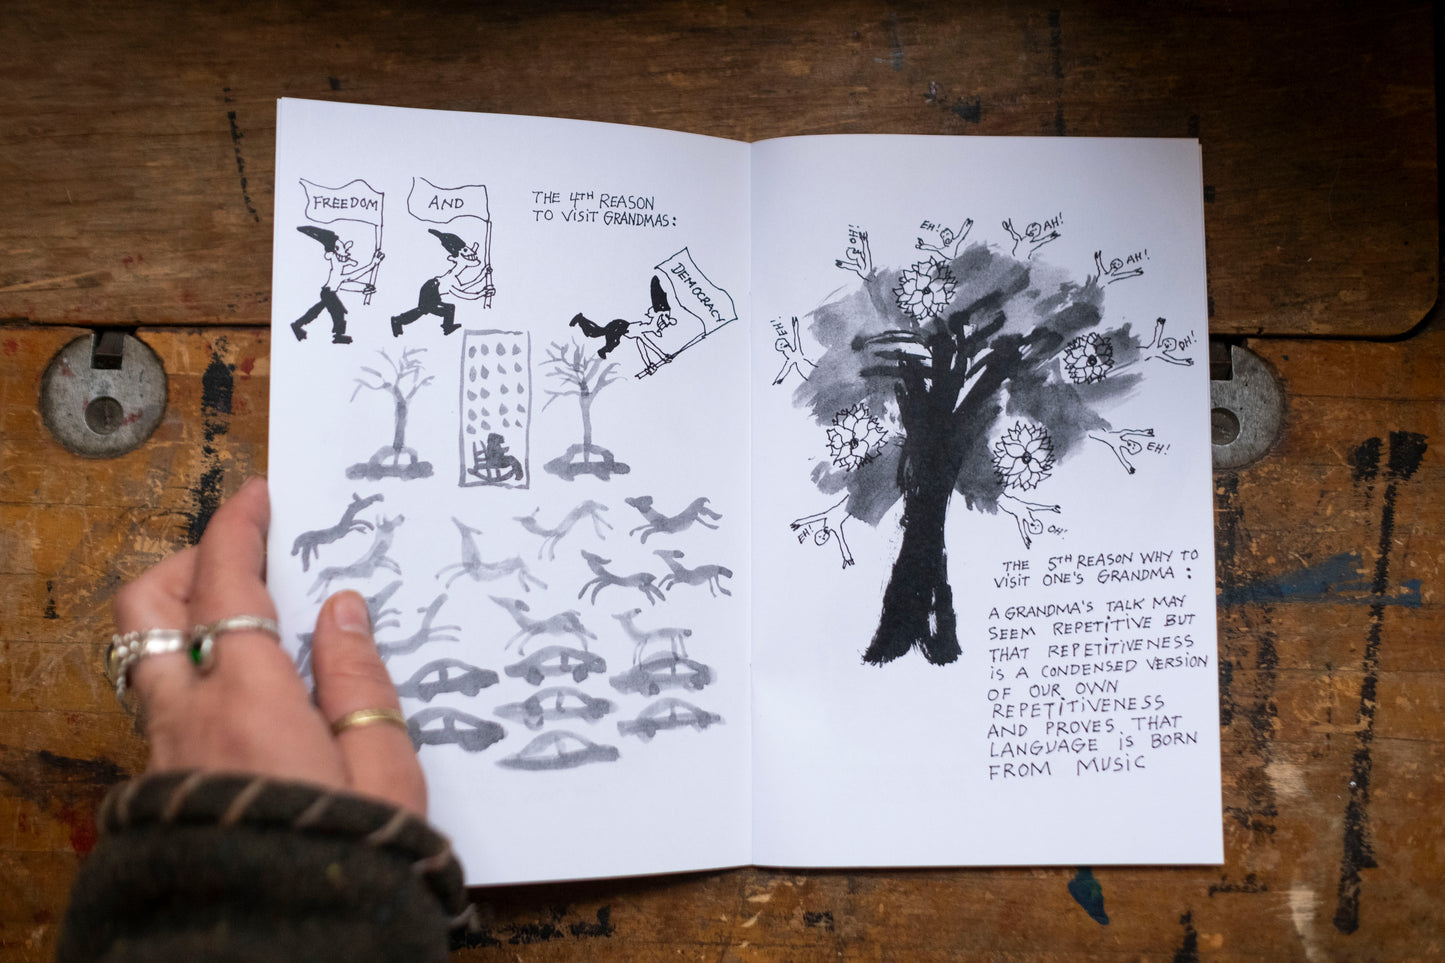 FREEDOM
AND
THE 4TH REASON
TO VISIT GRANDMAS:
DEMOCRACY
OH!
EH!
AH!
AH!
EH!
OH!
EH!
EH!
OH!
THE 5TH REASON WHY TO
VISIT ONE'S GRANDMA:
A GRANDMA'S TALK MAY
SEEM REPETITIVE BUT
THAT REPETITIVENESS
IS A CONDENSED VERSION
OF OUR OWN
REPETITIVENESS
AND PROVES THAT
LANGUAGE IS BORN
FROM MUSIC